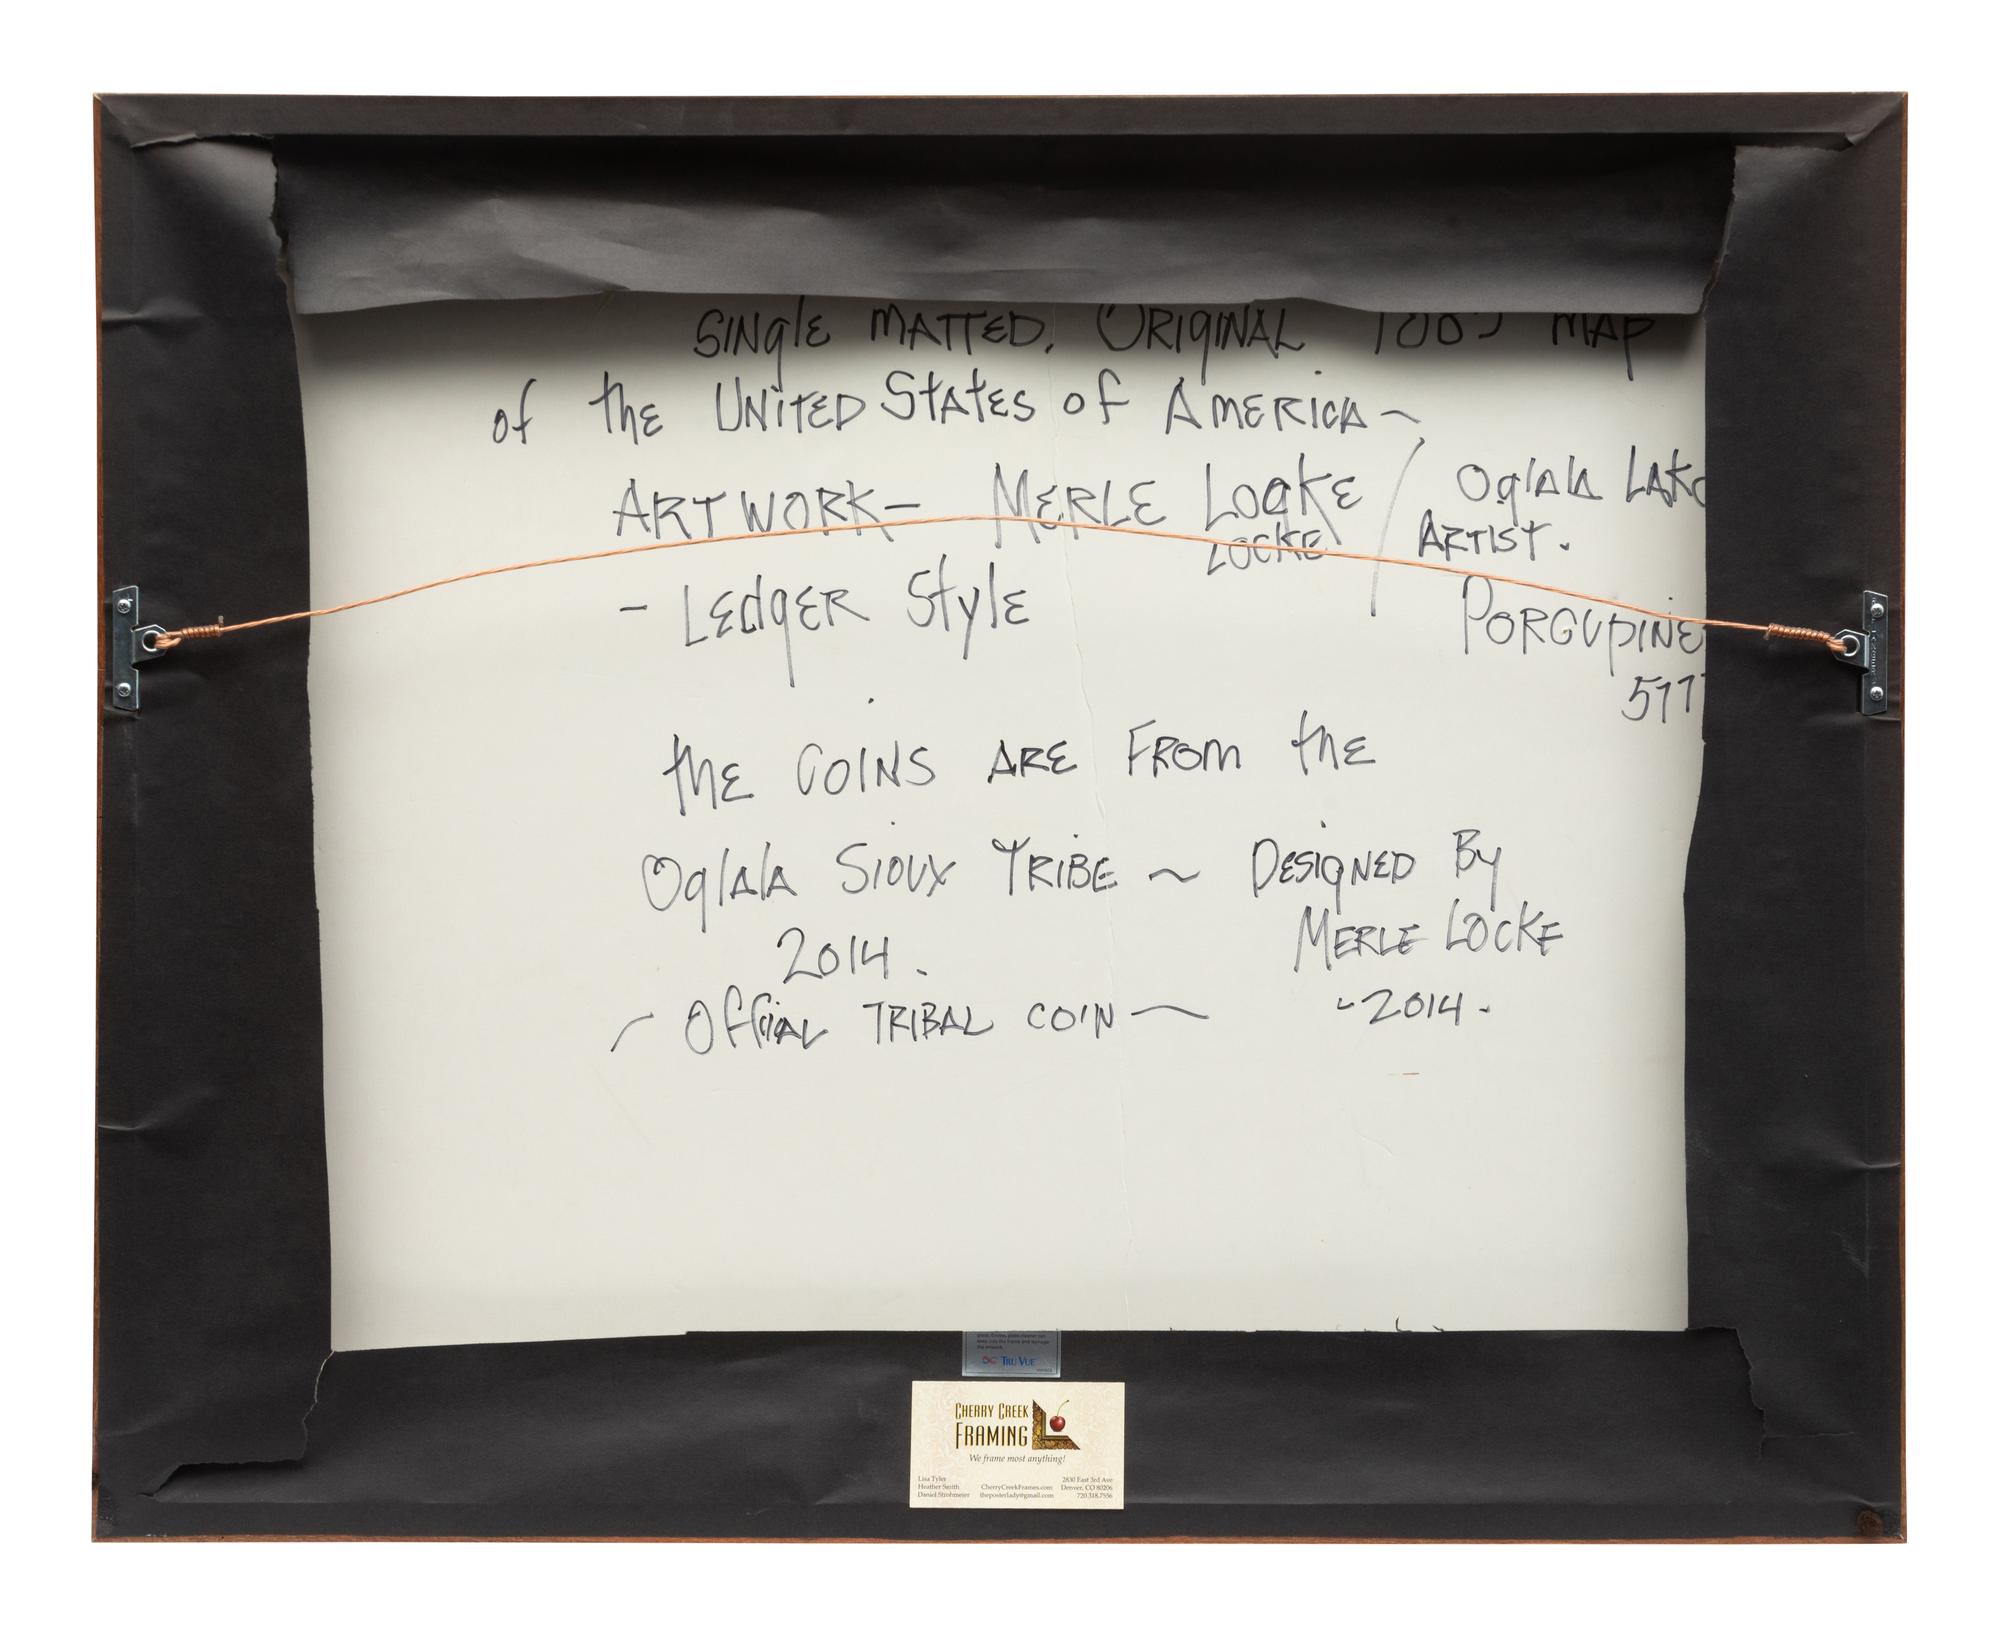 SINGLE MATTED. ORIGINAL MAP
of the UNITED STATES of AMERICA ~
ARTWORK – MERLE LOCKE / Oglala LAKO
LOCKE ARTIST.
- LEDGER Style PORCUPINE
577
the COINS ARE FROM the
Oglala SIOUX TRIBE ~ DESIGNED By
MERLE LOCKE
2014.
~ Official TRIBAL COIN ~ - 2014 -
keep into the frame and damage
the artwork.
TRU VUE
CHERRY CREEK
FRAMING
We frame most anything!
Lisa Tyler 2830 East 3rd Ave
Heather Smith CherryCreekFrames.com Denver, CO 80206
Daniel Strohmeier theposterlady@gmail.com 720.318.7556